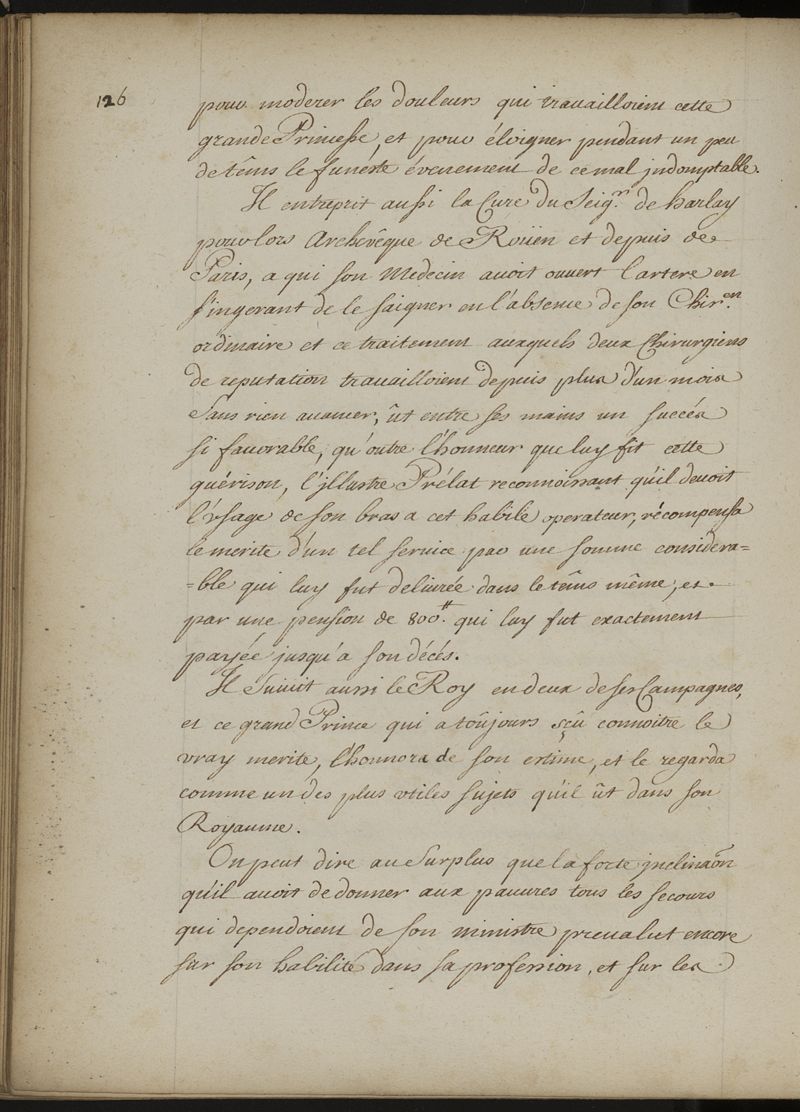 126
pour moderer les douleurs qui travailloient cette
grande Princesse, et pour éloigner pendant un peu
de têms le funeste évenement de ce mal jndomptable.
Il entreprit aussi la Cure du Seigr. de harlay
pour lors Archevêque de Roüen et depuis de
Paris, a qui son Medecin avoit ouvert l'artere en
s'ingerant de le saigner en l'absence de son Chiron.
ordinaire et ce traitement auxquels deux Chirurgiens
de reputation travailloient depuis plus d'un mois
Sans rien avancer, ût entre ses mains un succés
si favorable, qu'outre l'honneur que luy fit cette
guérison, l'jllustre Prélat reconnoissant qu'il devoit
l'vsage de son bras a cet habile operateur, récompensa
le merite d'un tel service par une somme considera=
=ble qui luy fut delivrée dans le têms même, et
par une pension de 800.# qui luy fut exactement
payée jusqu'a son décés.
Il Suivit aussi le Roy en deux de ses Campagnes,
et ce grand Prince qui a toûjours sçû connoitre le
vray merite, l'honnora de son estime, et le regarda
comme un des plus vtiles sujets qu'il ût dans son
Royaume.
On peut dire au Surplus que la forte jnclinaõn
qu'il avoit de donner aux pauvres tous les secours
qui dependoient de son ministre prevalut encore
sur son habilité dans sa profession, et sur les